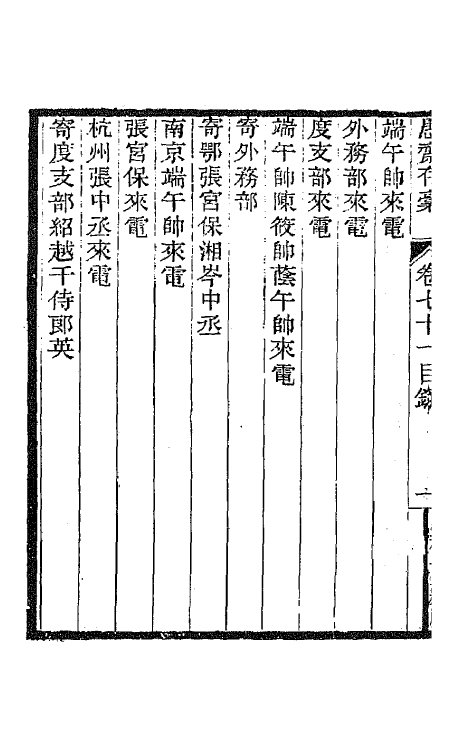 愚齋存稾
卷七十一目錄
端午帥來電
外務部來電
度支部來電
端午帥陳筱帥蔭午帥來電
寄外務部
寄鄂張宮保湘岑中丞
南京端午帥來電
張宮保來電
杭州張中丞來電
寄度支部紹越千侍郎英